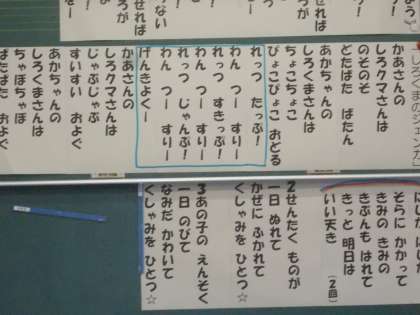 せれば
ろが
しろくまのジェンカ
かあさんの
しろクマさんは
のそのそ
どたばた ばたん
あかちゃんの
しろくまさんは
ちょこちょこ
ぴょこぴょこ おどる
れっつ たっぷ！
わん つー すりー
れっつ すきっぷ！
わん つー すりー
れっつ じゃんぷ！
わん つー すりー
げんきよくー
かあさんの
しろクマさんは
じゃぶじゃぶ
すいすい およぐ
あかちゃんの
しろくまさんは
ちゃぽちゃぽ
ぱたぱた およぐ
にじが にじが
そらに かかって
きみの きみの
きぶんも はれて
きっと 明日は
いい天き （2回）
2せんたく ものが
一日 ぬれて
かぜに ふかれて
くしゃみを ひとつ☆
3あの子の えんそく
一日 のびて
なみだ かわいて
くしゃみを ひとつ☆